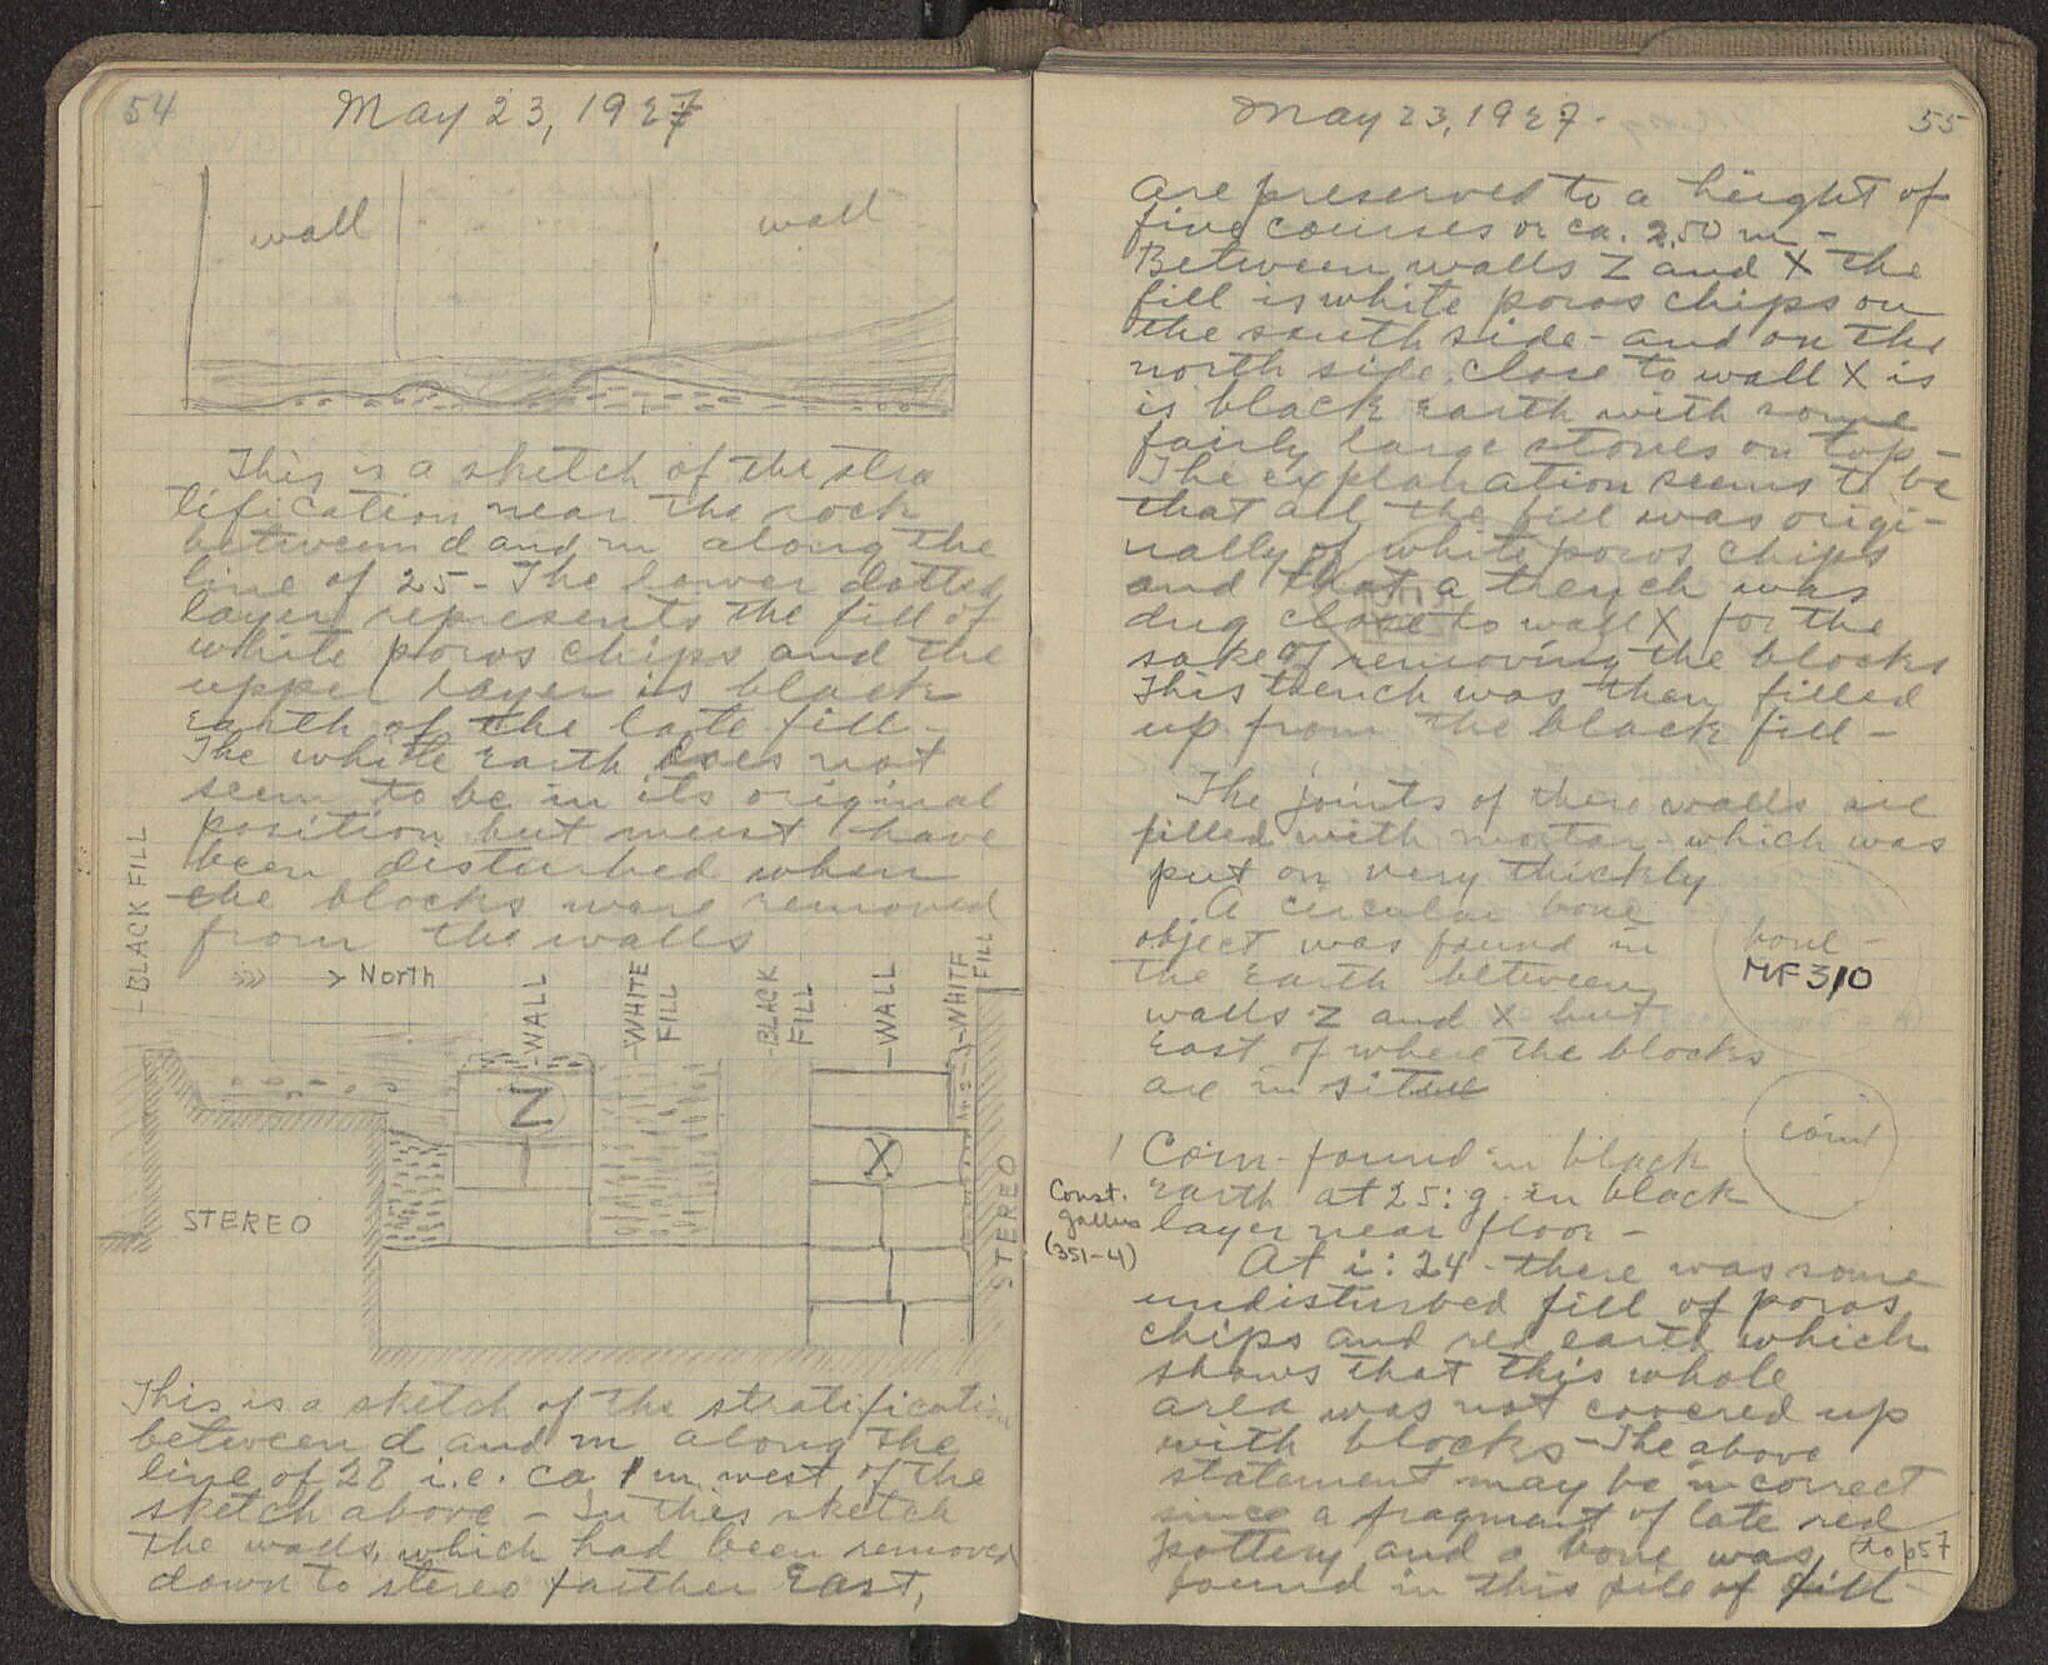 54
May 23, 1927
wall
wall
This is a sketch of the stra
tification near the rock
between d and m along the
line of 25 - The lower dotted
layer represents the fill of
white poros chips and the
upper layer is black
earth of the late fill -
The white earth does not
seem to be in its original
position but must have
been disturbed when
the blocks were removed
from the walls
-BLACK FILL
North
-WALL
-WHITE
FILL
-BLACK
FILL
-WALL
-WHITE
FILL
Z
X
STEREO
STEREO
This is a sketch of the stratification
between d and m along the
line of 28 i.e. ca 1 m west of the
sketch above - In this sketch
the walls, which had been removed
down to stereo farther East,
May 23, 1927.
55
are preserved to a height of
five courses or ca. 2.50 m -
Between walls Z and X the
fill is white poros chips on
the south side - and on the
north side, close to wall X is
is black earth with some
fairly large stones on top -
The explanation seems to be
that all the fill was origi-
nally of white poros chips
and that a trench was
dug close to wall X for the
sake of removing the blocks
This trench was then filled
up from the black fill -
The joints of these walls are
filled with mortar - which was
put on very thickly
A circular bone
object was found in
the earth between
walls Z and X but
East of where the blocks
are in situ
bone -
MF 310
1 Coin - found in black
earth at 25: g. in black
layer near floor -
coin
Const.
Gallus
(351-4)
At i: 24 - there was some
undisturbed fill of poros
chips and red earth which
shows that this whole
area was not covered up
with blocks - The above
statement may be incorrect
since a fragment of late red
pottery and a bone was
found in this pile of fill -
to p57